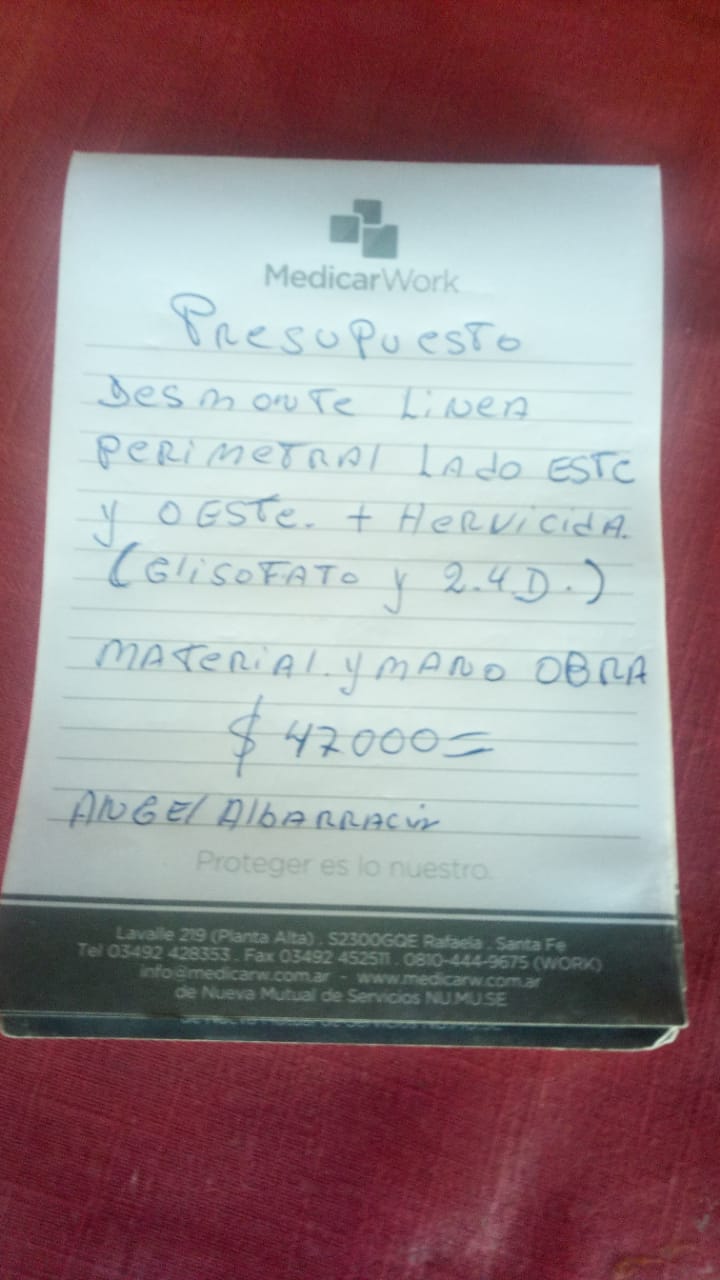 MedicarWork
Presupuesto
Desmonte Linea
Perimetral Lado ESTE
y OESTE. + Hervicida.
(Glisofato y 2.4D.)
Material. y mano OBRA
$ 47000=
Angel Albarracin
Proteger es lo nuestro.
Lavalle 219 (Planta Alta) . S2300GQE Rafaela . Santa Fe
Tel 03492 428353 . Fax 03492 452511 . 0810-444-9675 (WORK)
info@medicarw.com.ar - www.medicarw.com.ar
de Nueva Mutual de Servicios NU.MU.SE